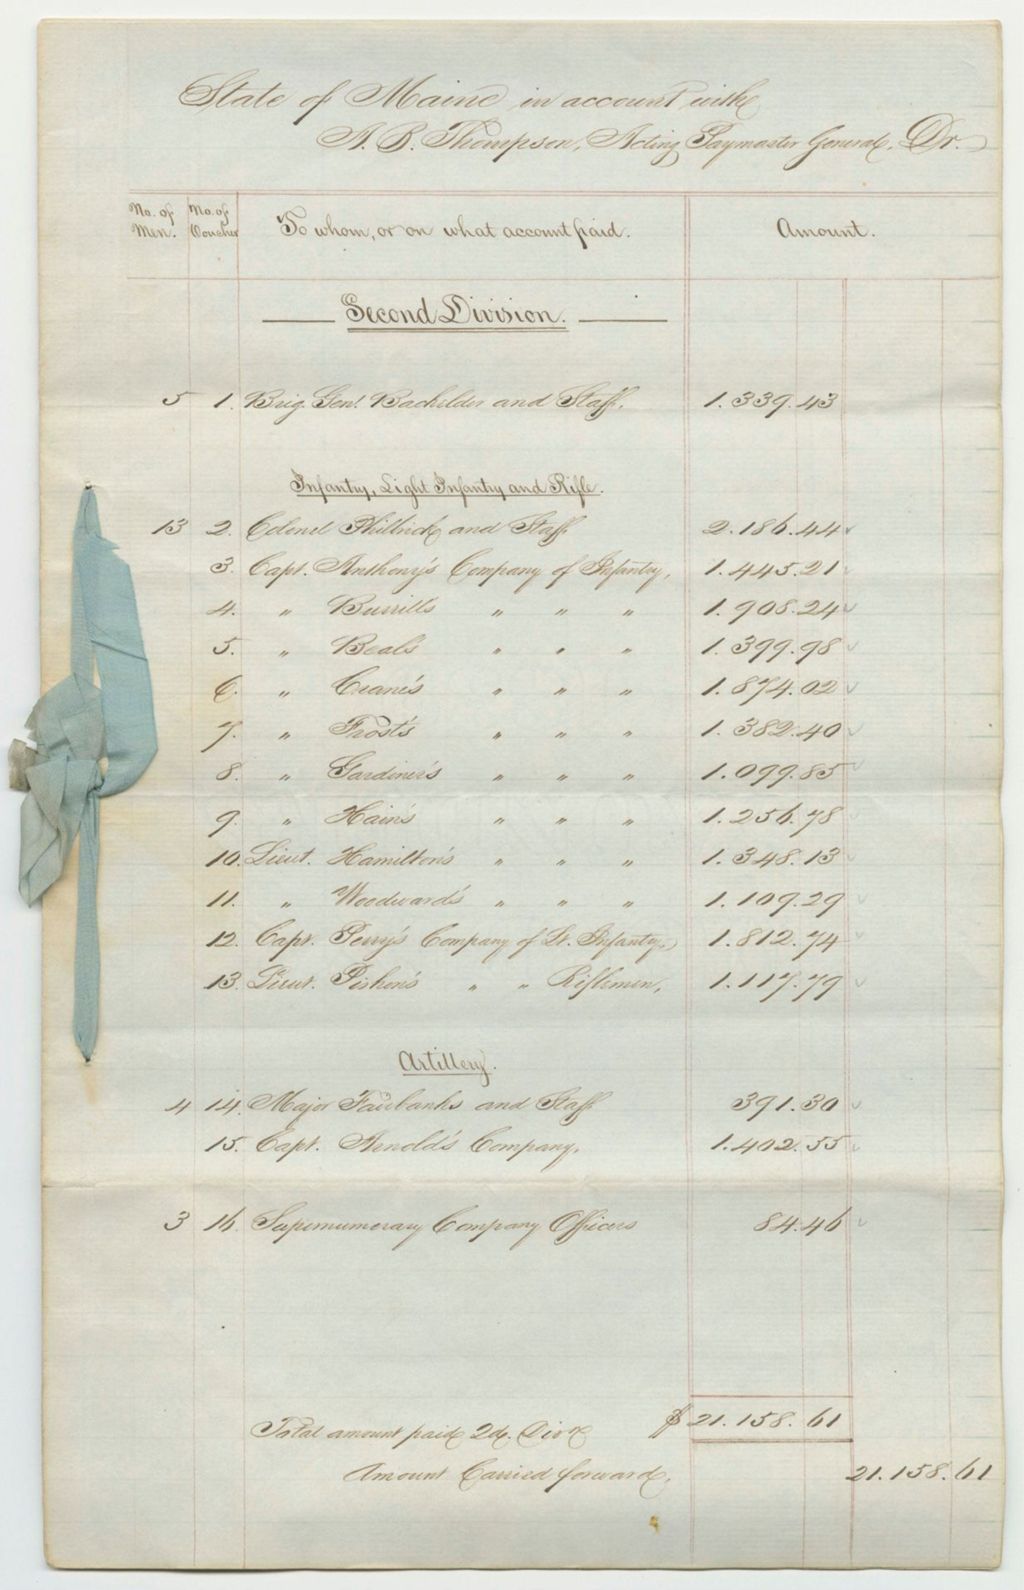 State of Maine in account with
A. B. Thompson, Acting Paymaster General, Dr.
No. of Men. No. of Voucher To whom, or on what account paid. Amount.
Second Division.
5 1. Brig. Genl. Bachelder and Staff. 1.339.43
Infantry, Light Infantry and Rifle.
13 2. Colonel Philbrick and Staff 2.186.44
3. Capt. Anthony's Company of Infantry, 1.445.21
4. " Burrill's " " " 1.908.24
5. " Beal's " " " 1.399.98
6. " Crane's " " " 1.874.02
7. " Frost's " " " 1.382.40
8. " Gardiner's " " " 1.099.85
9. " Hain's " " " 1.256.78
10. Lieut. Hamilton's " " " 1.348.13
11. " Woodward's " " " 1.109.29
12. Capt. Perry's Company of Lt. Infantry, 1.812.74
13. Lieut. Pishon's " " Riflemen, 1.117.79
Artillery.
4 14. Major Fairbanks and Staff 391.30
15. Capt. Arnold's Company, 1.402.55
3 16 Supernumerary Company Officers 84.46
Total amount paid 2d. Divn $ 21.158.61
Amount Carried forward, 21.158.61